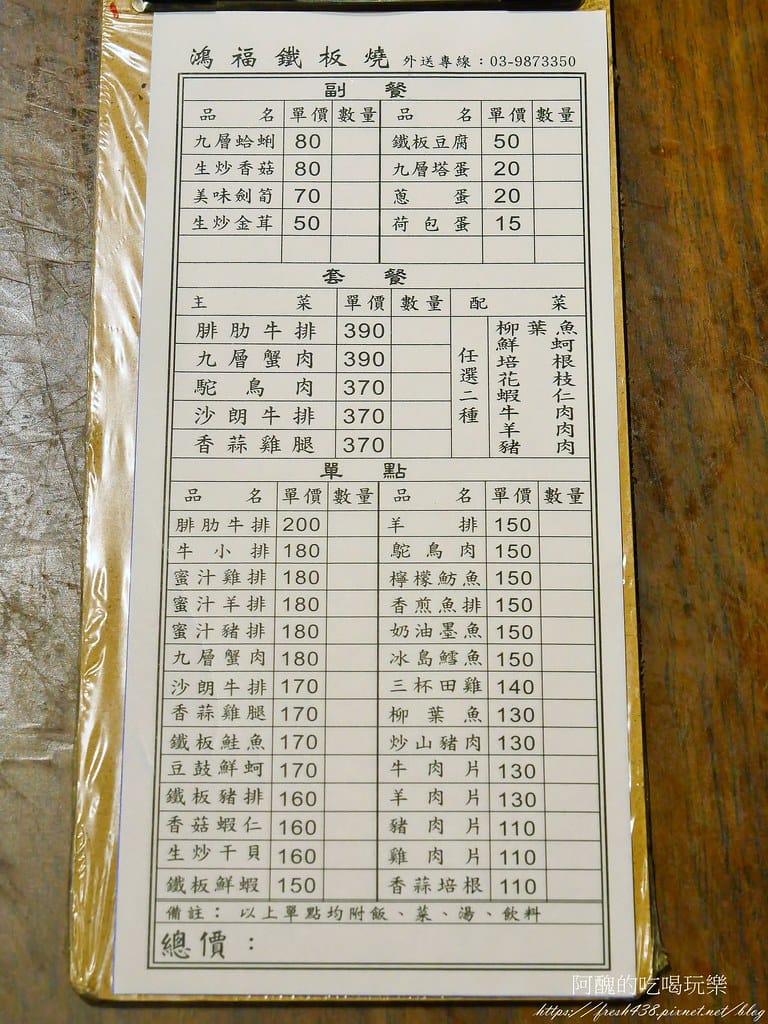 鴻福鐵板燒 外送專線：03-9873350
副餐
品名 單價 數量 品名 單價 數量
九層蛤蜊 80 鐵板豆腐 50
生炒香菇 80 九層塔蛋 20
美味劍筍 70 蔥蛋 20
生炒金茸 50 荷包蛋 15
套餐
主菜 單價 數量 配菜
腓肋牛排 390
九層蟹肉 390
駝鳥肉 370
沙朗牛排 370
香蒜雞腿 370
任選二種
柳葉魚
鮮蚵
培根
花枝
蝦仁
牛肉
羊肉
豬肉
單點
品名 單價 數量 品名 單價 數量
腓肋牛排 200 羊排 150
牛小排 180 鴕鳥肉 150
蜜汁雞排 180 檸檬魴魚 150
蜜汁羊排 180 香煎魚排 150
蜜汁豬排 180 奶油墨魚 150
九層蟹肉 180 冰島鱈魚 150
沙朗牛排 170 三杯田雞 140
香蒜雞腿 170 柳葉魚 130
鐵板鮭魚 170 炒山豬肉 130
豆鼓鮮蚵 170 牛肉片 130
鐵板豬排 160 羊肉片 130
香菇蝦仁 160 豬肉片 110
生炒干貝 160 雞肉片 110
鐵板鮮蝦 150 香蒜培根 110
備註： 以上單點均附飯、菜、湯、飲料
總價：
阿醜的吃喝玩樂
https://fresh438.pixnet.net/blog